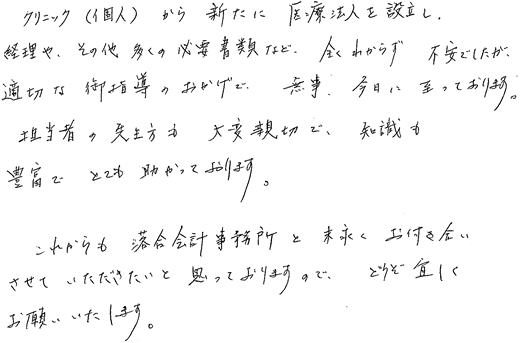 クリニック(個人)から新たに医療法人を設立し、
経理や、その他多くの必要書類など、全くわからず不安でしたが、
適切な御指導のおかげで、無事、今日に至っております。
担当者の先生方も大変親切で、知識も
豊富でとても助かっております。
これからも落合会計事務所と末永くお付き合い
させていただきたいと思っておりますので、どうぞ宜しく
お願いいたします。